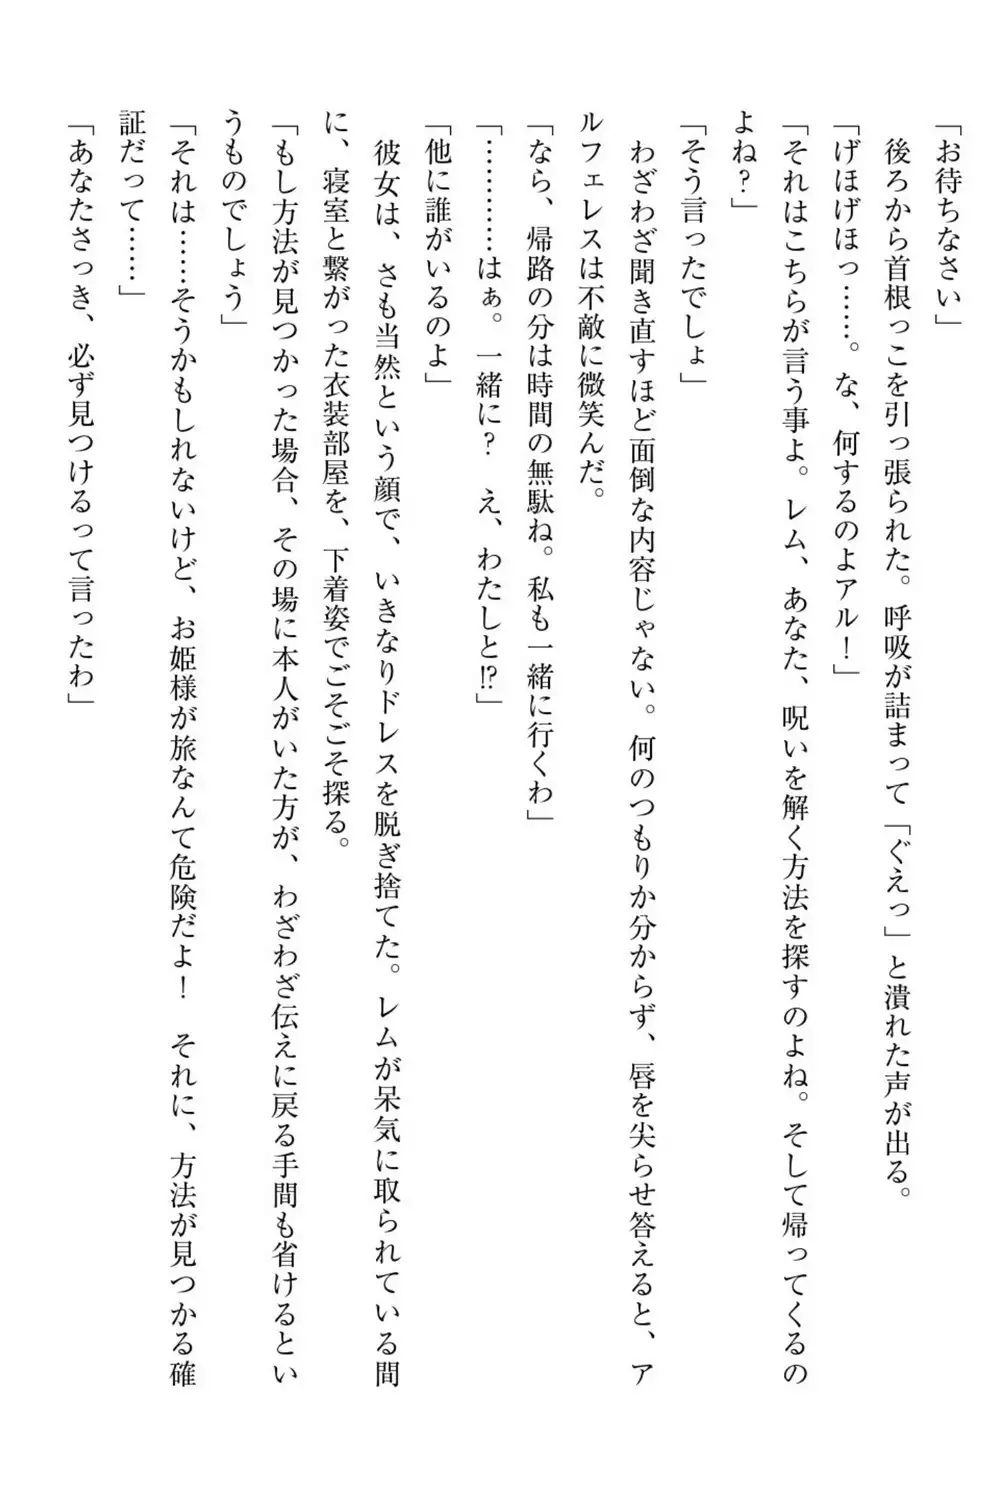 「お待ちなさい」
　後ろから首根っこを引っ張られた。呼吸が詰まって「ぐえっ」と潰れた声が出る。
「げほげほっ……。な、何するのよアル！」
「それはこちらが言う事よ。レム、あなた、呪いを解く方法を探すのよね。そして帰ってくるの
よね？」
「そう言ったでしょ」
　わざわざ聞き直すほど面倒な内容じゃない。何のつもりか分からず、唇を尖らせ答えると、ア
ルフェレスは不敵に微笑んだ。
「なら、帰路の分は時間の無駄ね。私も一緒に行くわ」
「…………はぁ。一緒に？　え、わたしと⁉」
「他に誰がいるのよ」
　彼女は、さも当然という顔で、いきなりドレスを脱ぎ捨てた。レムが呆気に取られている間
に、寝室と繋がった衣装部屋を、下着姿でごそごそ探る。
「もし方法が見つかった場合、その場に本人がいた方が、わざわざ伝えに戻る手間も省けるとい
うものでしょう」
「それは……そうかもしれないけど、お姫様が旅なんて危険だよ！　それに、方法が見つかる確
証だって……」
「あなたさっき、必ず見つけるって言ったわ」